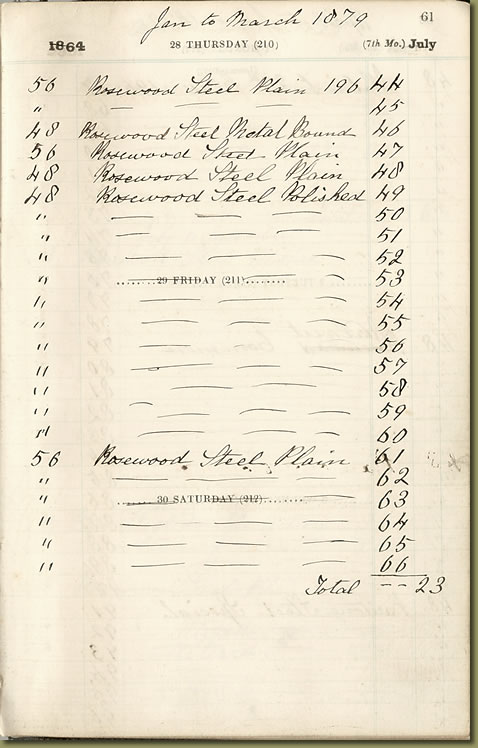 Jan to March 1879
61
1864 28 THURSDAY (210) (7th Mo.) July
56 Rosewood Steel Plain 196 44
" — — — 45
48 Rosewood Steel Metal Bound 46
56 Rosewood Steel Plain 47
48 Rosewood Steel Plain 48
48 Rosewood Steel Polished 49
" — — — 50
" — — — 51
" — — — 52
" 29 FRIDAY (211) — — 53
" — — — 54
" — — — 55
" — — — 56
" — — — 57
" — — — 58
" — — — 59
" — — — 60
56 Rosewood Steel Plain 61
" — — — 62
" 30 SATURDAY (212) — 63
" — — — 64
" — — — 65
" — — — 66
Total -- 23